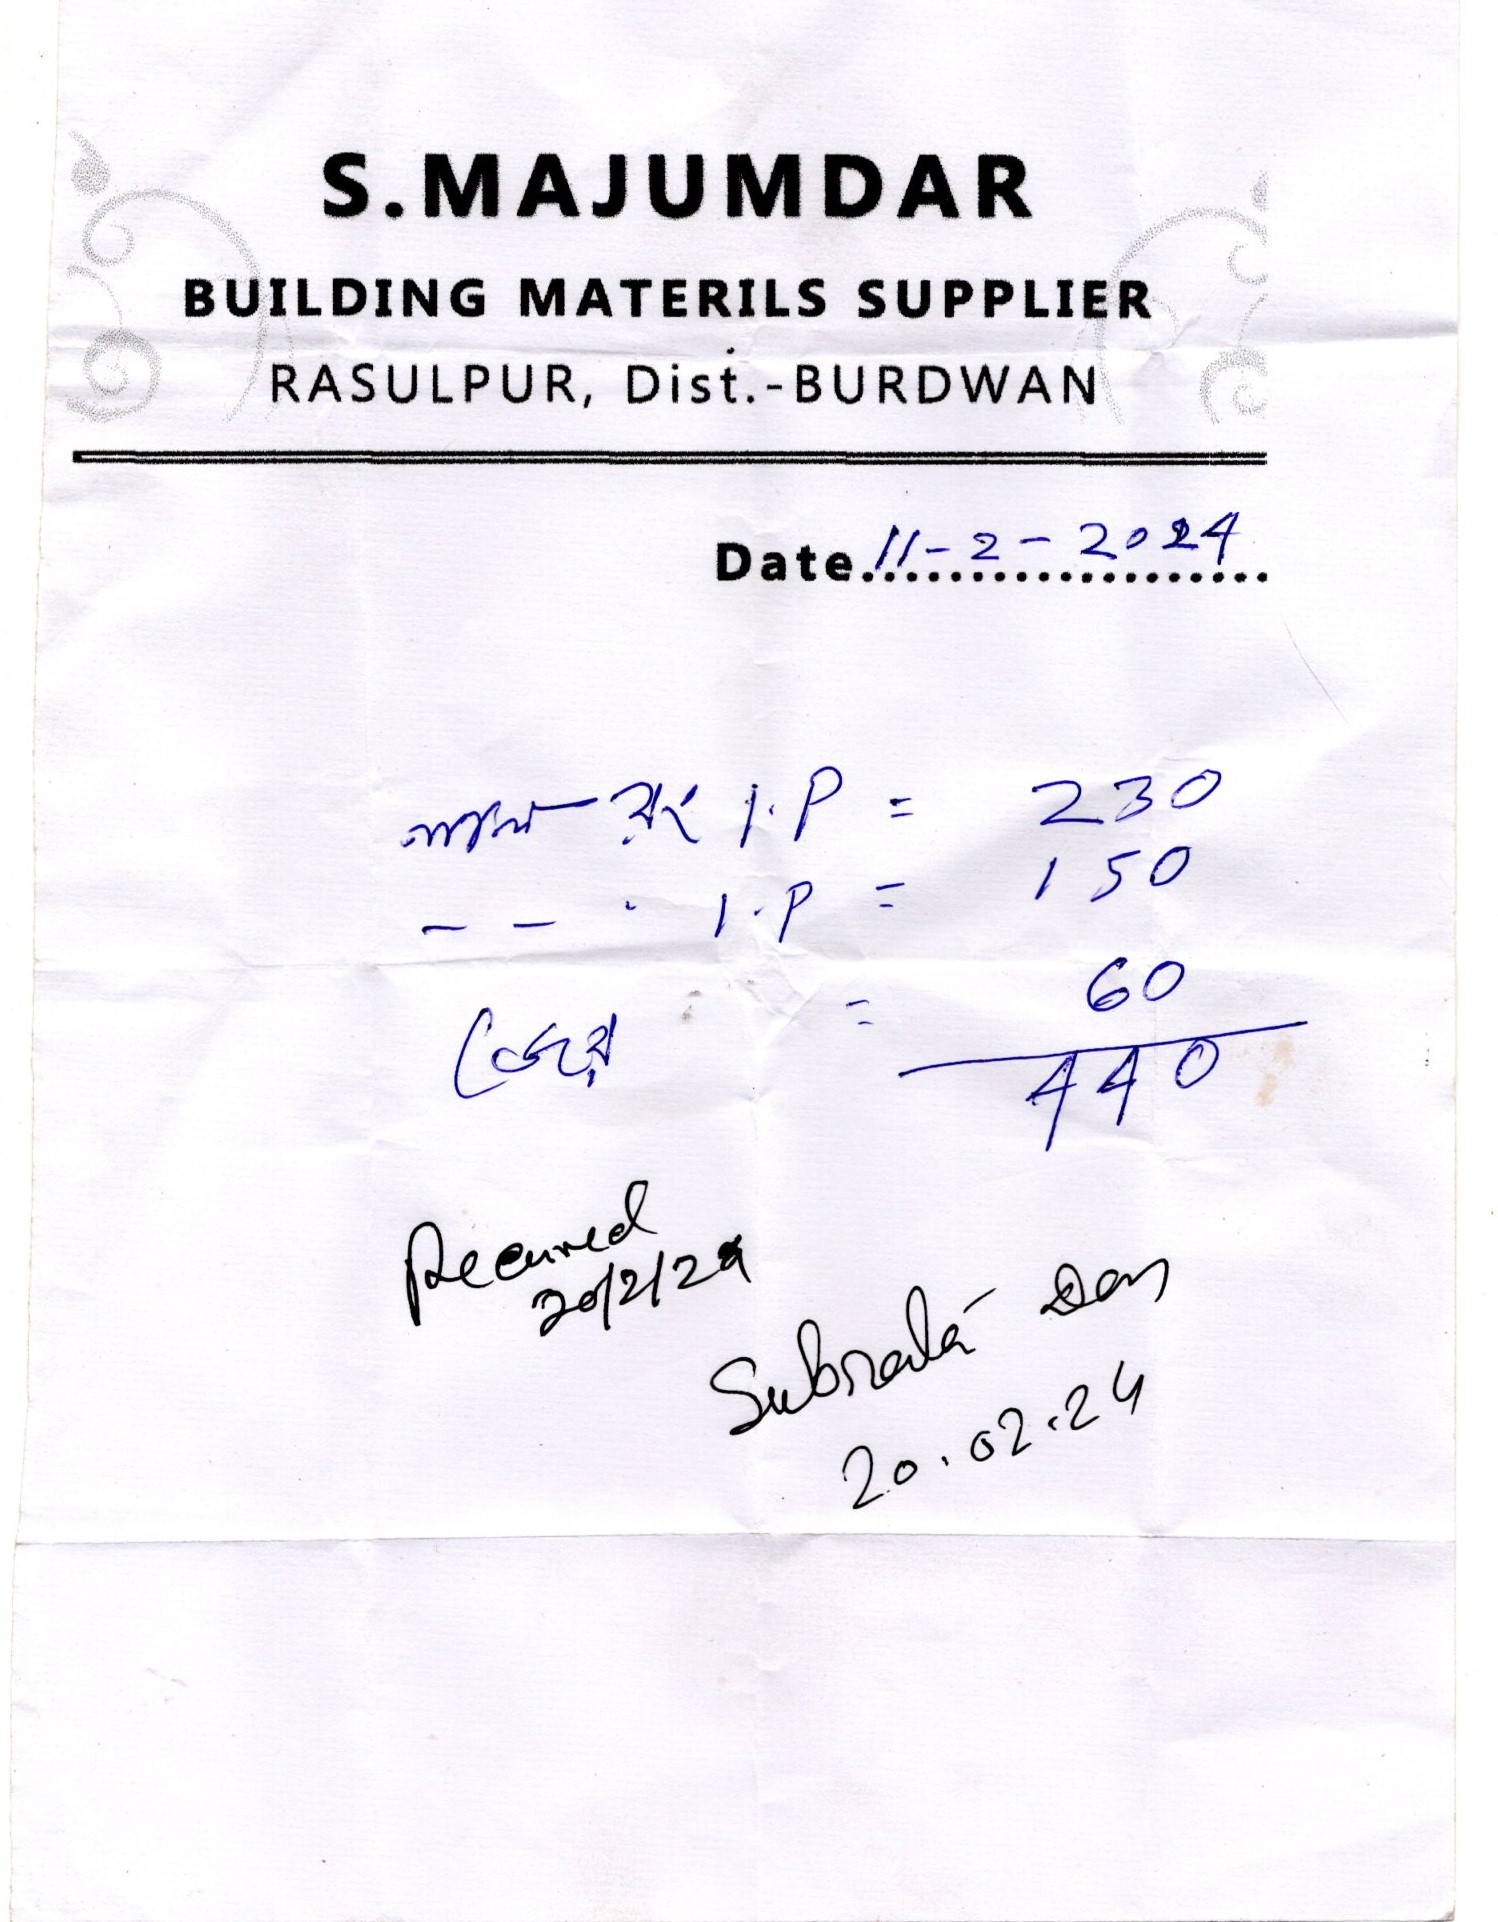 S.MAJUMDAR
BUILDING MATERILS SUPPLIER
RASULPUR, Dist.-BURDWAN
Date 11-2-2024
রং 1.P = 230
- - · 1.P = 150
= 60
440
Received
20/2/24
Subrata Das
20.02.24